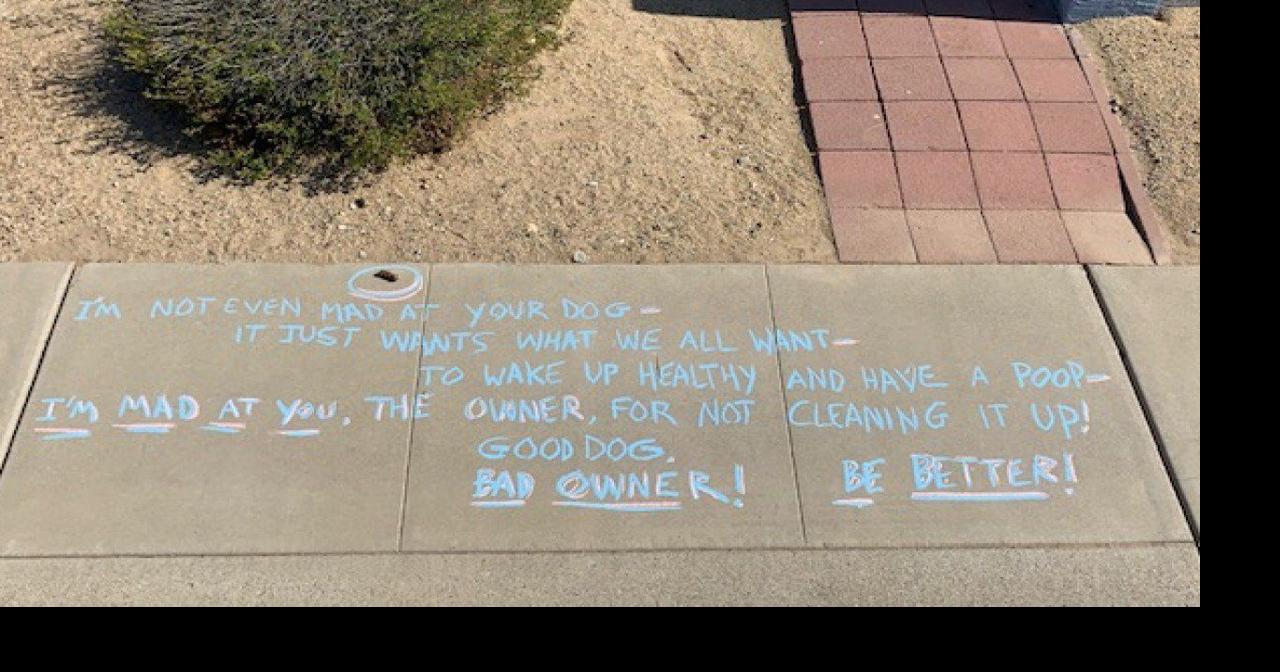 I'M NOT EVEN MAD AT YOUR DOG-
IT JUST WANTS WHAT WE ALL WANT-
TO WAKE UP HEALTHY AND HAVE A POOP-
I'M MAD AT YOU, THE OWNER, FOR NOT CLEANING IT UP!
GOOD DOG.
BAD OWNER! BE BETTER!